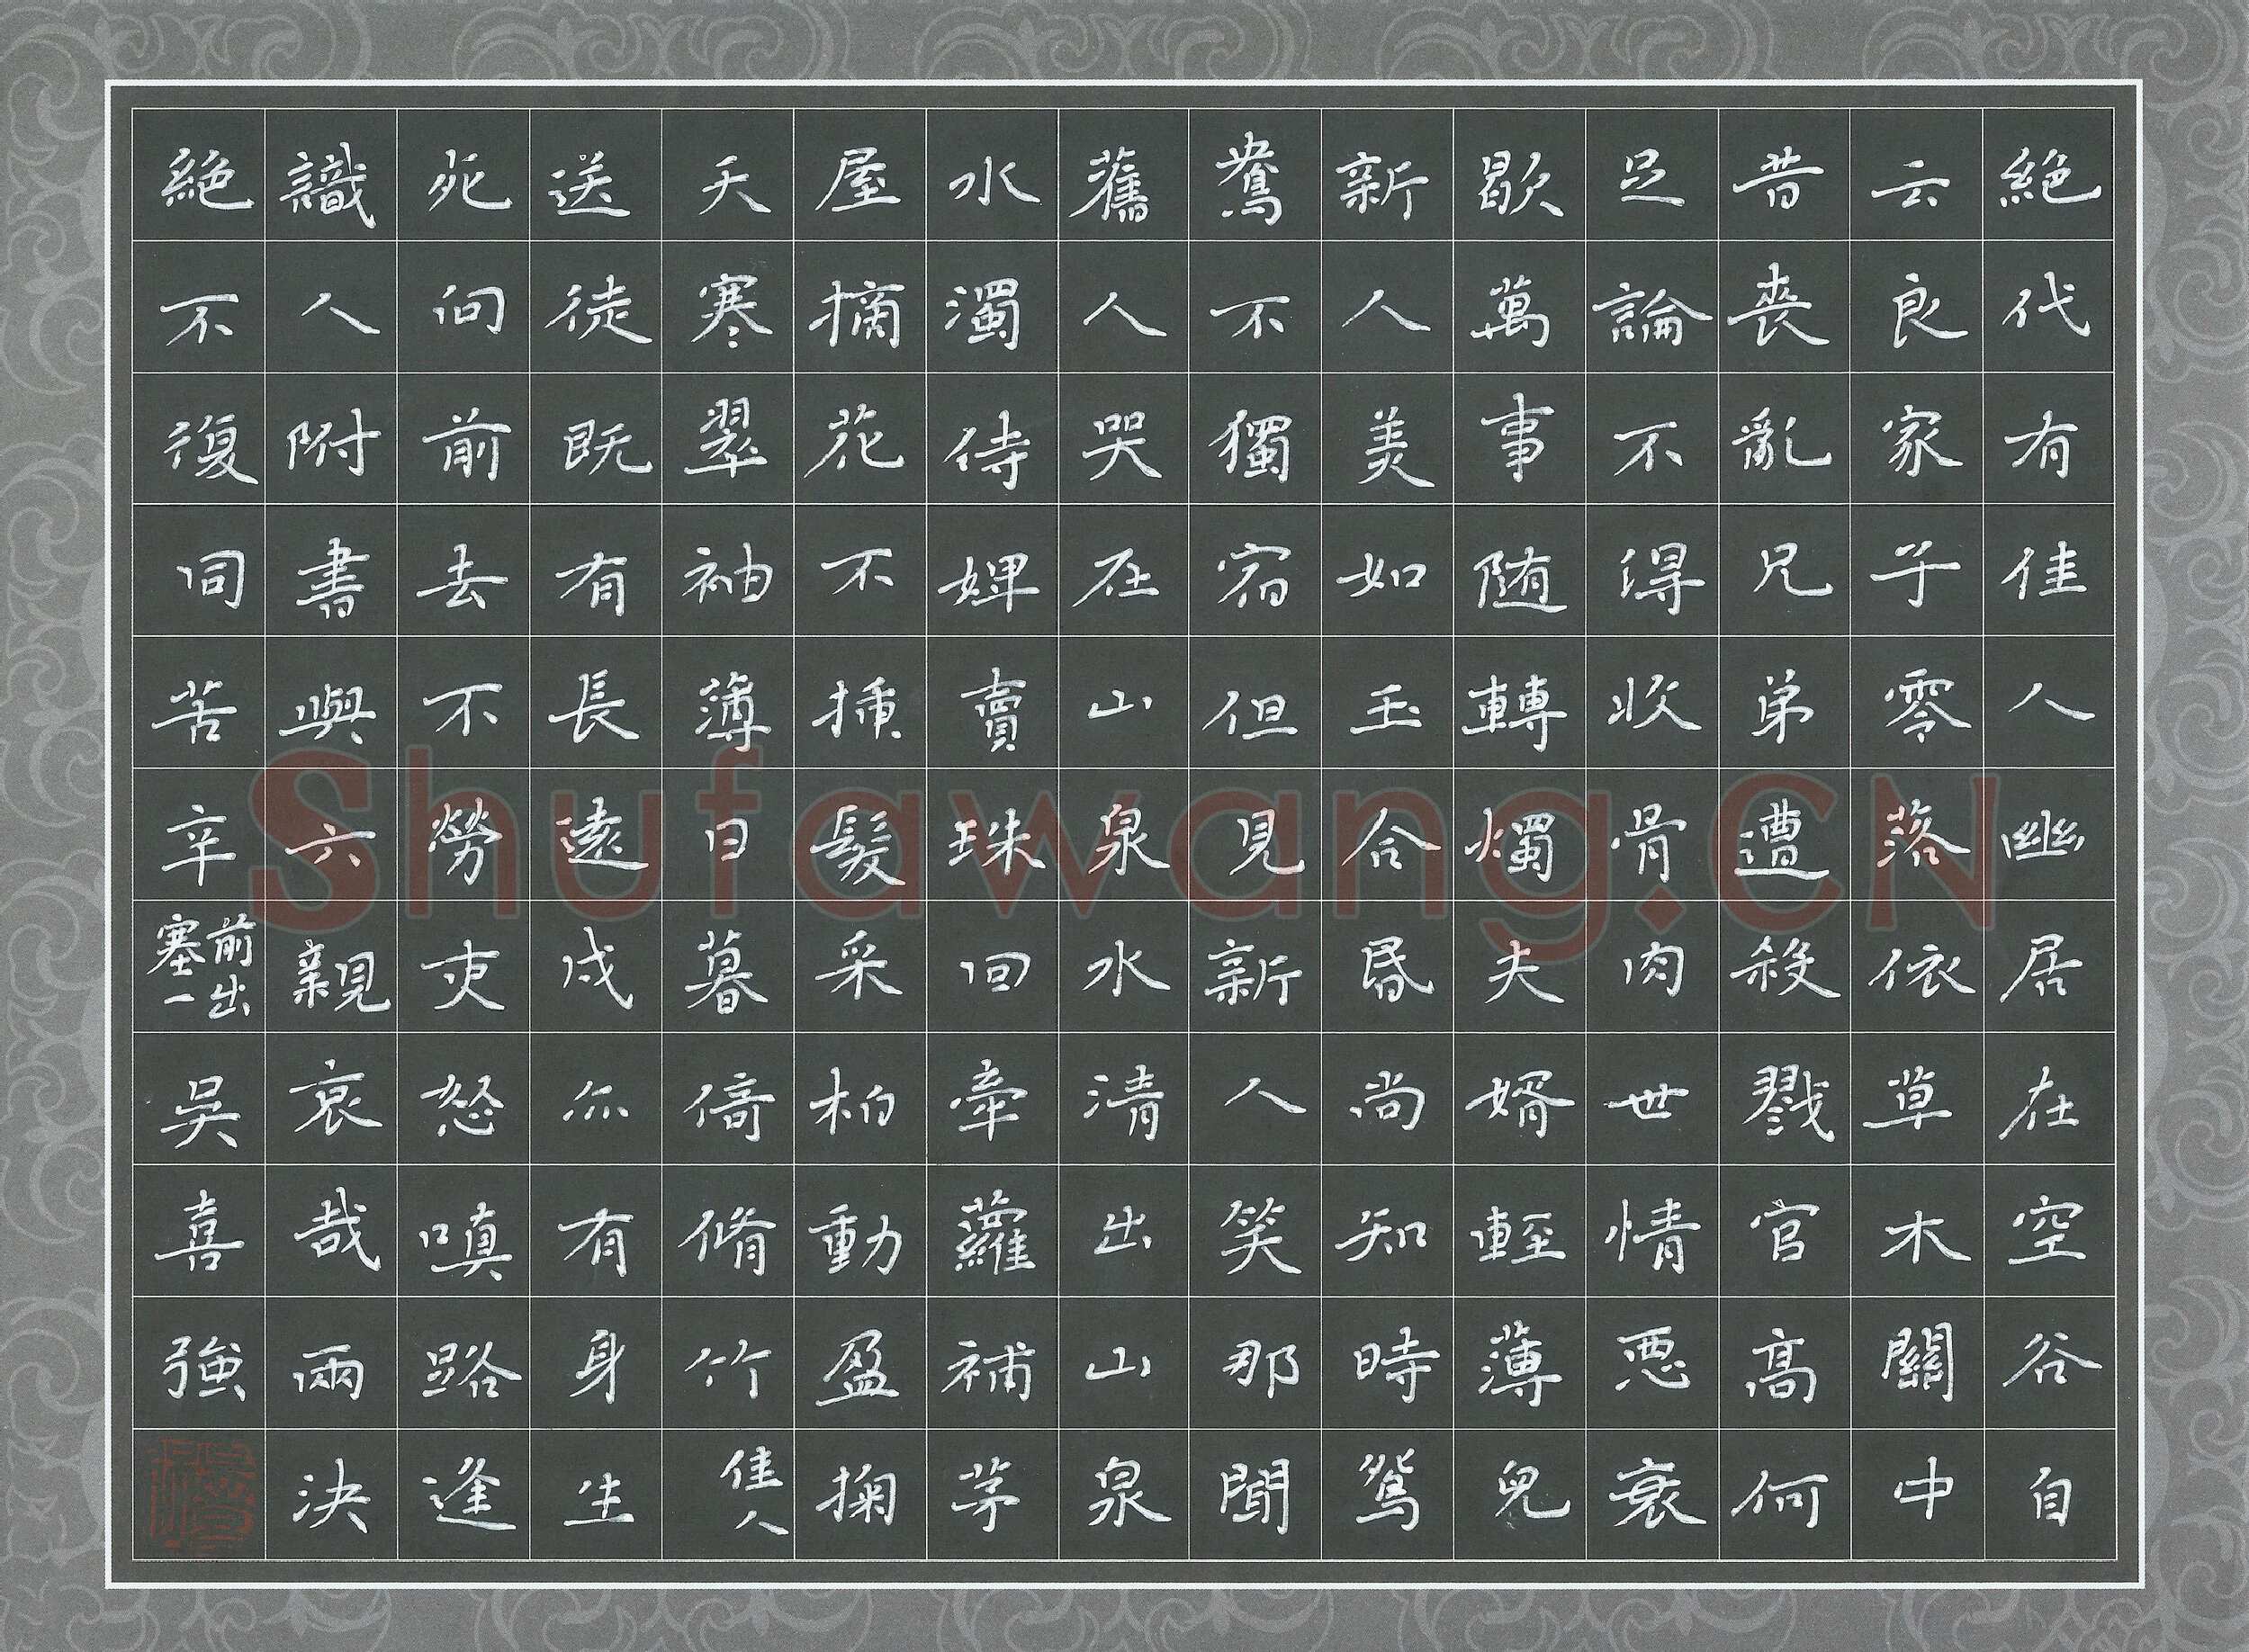 絕代有佳人幽居在空谷自
云良家子零落依草木關中
昔喪亂兄弟遭殺戮官高何
足論不得收骨肉世情惡衰
歇萬事随轉燭夫婿輕薄兒
新人美如玉合昏尚知時鴛
鴦不獨宿但見新人笑那聞
舊人哭在山泉水清出山泉
水濁侍婢賣珠回牽蘿補茅
屋摘花不插髮采柏動盈掬
天寒翠袖薄日暮倚脩竹佳人
送徒既有長遠戍亦有身生
死向前去不勞吏怒嗔路逢
識人附書與六親哀哉兩決
絕不復同苦辛前出塞一吳喜強
Shufawang.CN